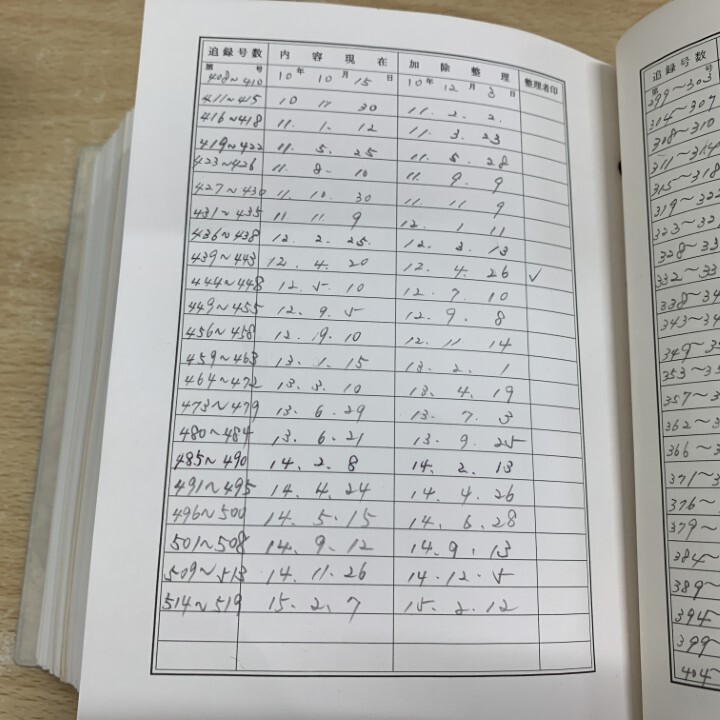 追録号数 内容現在 加除整理 整理者印
第 号 408~410 10年 10月 15日 10年 12月 3日
411~415 10 11 30 11. 2. 2.
416~418 11. 1. 12 11. 3. 23
419~422 11. 5. 25 11. 5. 28
423~426 11. 8. 10 11. 9. 9
427~430 11. 10. 30 11. 11 9
431~435 11 11. 9 12. 1 11
436~438 12. 2. 25. 12. 3. 13
439~443 12. 4. 20 12. 4. 26 ✓
444~448 12. 5 10 12. 7. 10
449~455 12. 9. 5 12. 9. 8
456~458 12. 19. 10 12. 11 14
459~463 13. 1. 15 13. 2. 1
464~472 13. 3. 10 13. 4. 19
473~479 13. 6. 29 13. 7. 3
480~484 13. 6. 21 13. 9. 25
485~490 14. 2. 8 14. 2. 13
491~495 14. 4. 24 14. 4. 26
496~500 14. 5. 15 14. 6. 28
501~508 14. 9. 12 14. 9. 13
509~513 14. 11. 26 14. 12. 5
514~519 15. 2. 7 15. 2. 12
追録号数
第 299~303
304~307
308~310
311~314
315~318
319~322
323~32
328~33
332~33
338~34
343~34
349~35
353~35
357~3
362~3
366~3
371~3
376~
379~
384~
389~
394~
399~
404~